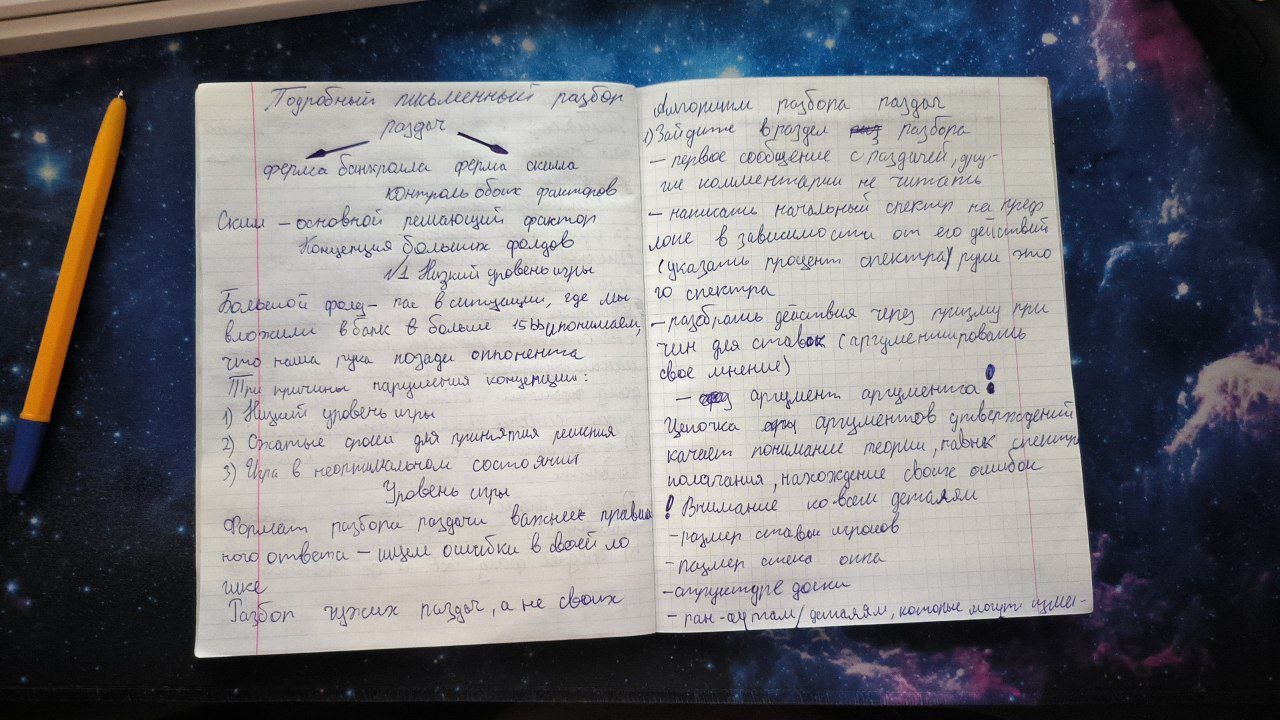 Подробный письменный разбор
раздач
ферма банкролла ферма скилла
контроль обоих факторов
Скилл – основной решающий фактор
Концепция больших фолдов
№1 Низкий уровень игры
Большой фолд – пас в ситуации, где мы
вложили в банк в больше 15 bb и понимаем,
что наша рука позади оппонента
Три причины нарушения концепции:
1) Низкий уровень игры
2) Сжатые сроки для принятия решения
3) Игра в неоптимальном состоянии
Уровень игры
Формат разбора раздачи важнее правиль
ного ответа – ищем ошибки в своей ло
гике
Разбор чужих раздач, а не своих
Алгоритм разбора раздач
1) Зайдите в раздел разбора
– первое сообщение с раздачей, дру-
гие комментарии не читать
– написать начальный спектр на преф
лопе в зависимости от его действий
(указать процент спектра) / руки это
го спектра
– разобрать действия через призму при
чин для ставок (аргументировать
свое мнение)
– аргумент аргумента!
Цепочка аргументов утверждений
качает понимание теории, навык спектро
полагания, нахождение своих ошибок
! Внимание ко всем деталям
– размер ставки игроков
– размер стека оппа
– структуре доски
– ран-аутам / деталям, которые могут изме-